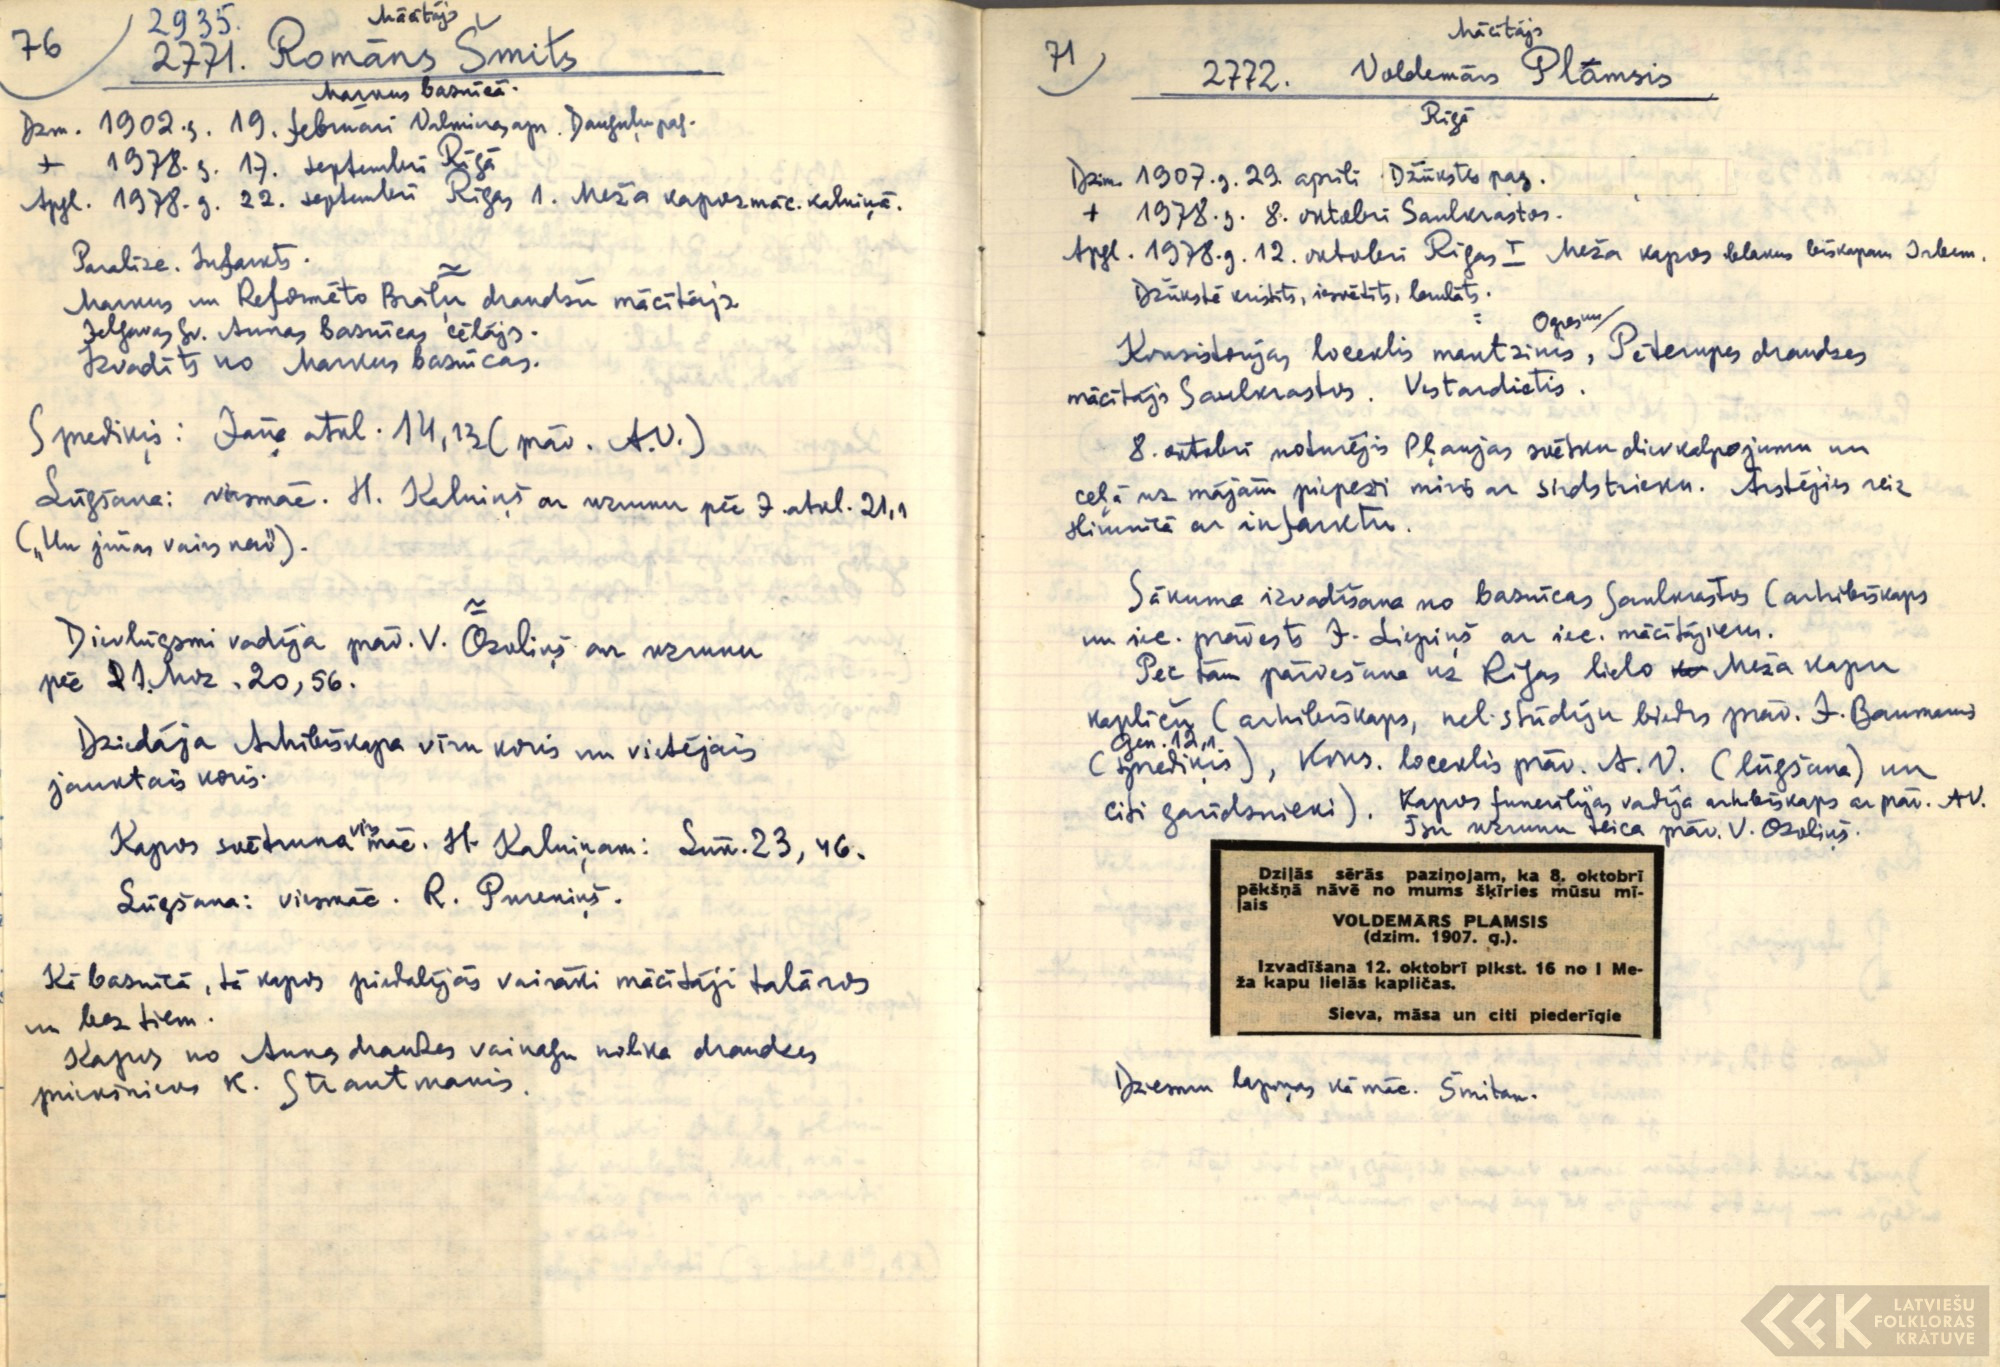 76
2935.
Mācītājs
2771. Romāns Šmits
Markus baznīcā.
Dzm. 1902.g. 19. februārī Valmieras apr. Dauguļu pag.
+ 1978.g. 17. septembrī Rīgā
Apgl. 1978.g. 22. septembrī Rīgas 1. Meža kapos māc. kalniņā.
Paralīze. Infarkts.
Markus un Reformēto Brāļu draudžu mācītājs
Jelgavas Sv. Annas baznīcas cēlājs.
Izvadīts no Markus baznīcas.
Sprediķis: Jāņa atkl. 14,13 (prāv. A.V.)
Lūgšana: virsmāc. H. Kalniņš ar uzrunu pēc J. atkl. 21,1
("Un jūŗas vairs nav").
Dievlūgsmi vadīja prāv. V. Ozoliņš ar uzrunu
pēc 1. Moz. 20, 56.
Dziedāja Arhibīskapa vīru koris un vietējais
jauktais koris.
Kapos svētruna virsmāc. H. Kalniņam: Lūk. 23, 46.
Lūgšana: virsmāc. R. Pureniņš.
Kā baznīcā, tā kapos piedalījās vairāki mācītāji talāros
un bez tiem.
Kapos no Annas draudzes vainagu nolika draudzes
priekšnieks K. Strautmanis.
71
Mācītājs
2772. Voldemārs Plāmsis
Rīgā
Dzim. 1907.g. 29. aprīlī Džūkstes pag.
+ 1978.g. 8. oktobrī Saulkrastos.
Apgl. 1978.g. 12. oktobrī Rīgas I Meža kapos blakus bīskapam Irbem.
Džūkstē kristīts, iesvētīts, laulāts.
Konsistorijas loceklis mantzinis, Ogres un Pēterupes draudzes
mācītājs Saulkrastos. Vestardietis.
8. oktobrī noturējis Pļaujas svētku dievkalpojumu un
ceļā uz mājām piepeži miris ar sirdstrieku. Ārstējies reiz
slimnīcā ar infarktu.
Sākumā izvadīšana no baznīcas Saulkrastos (arhibīskaps
un iec. prāvests J. Liepiņš ar iec. mācītājiem.
Pēc tam pārvešana uz Rīgas lielo Meža kapu
kapliču (arhibīskaps, nel. studiju biedrs prāv. J. Baumanis
Gen. 12,1.
(sprediķis), Kons. loceklis prāv. A.V. (lūgšana) un
citi garīdznieki). Kapos funerālijas vadīja arhibīskaps ar prāv. AV.
Īsu uzrunu teica prāv. V. Ozoliņš.
Dziļās sērās paziņojam, ka 8. oktobrī
pēkšņā nāvē no mums šķīries mūsu mī-
ļais
VOLDEMĀRS PLAMSIS
(dzim. 1907. g.).
Izvadīšana 12. oktobrī plkst. 16 no I Me-
ža kapu lielās kapličas.
Sieva, māsa un citi piederīgie
Dziesmu lapiņas kā māc. Šmitam.
LATVIEŠU
FOLKLORAS
KRĀTUVE